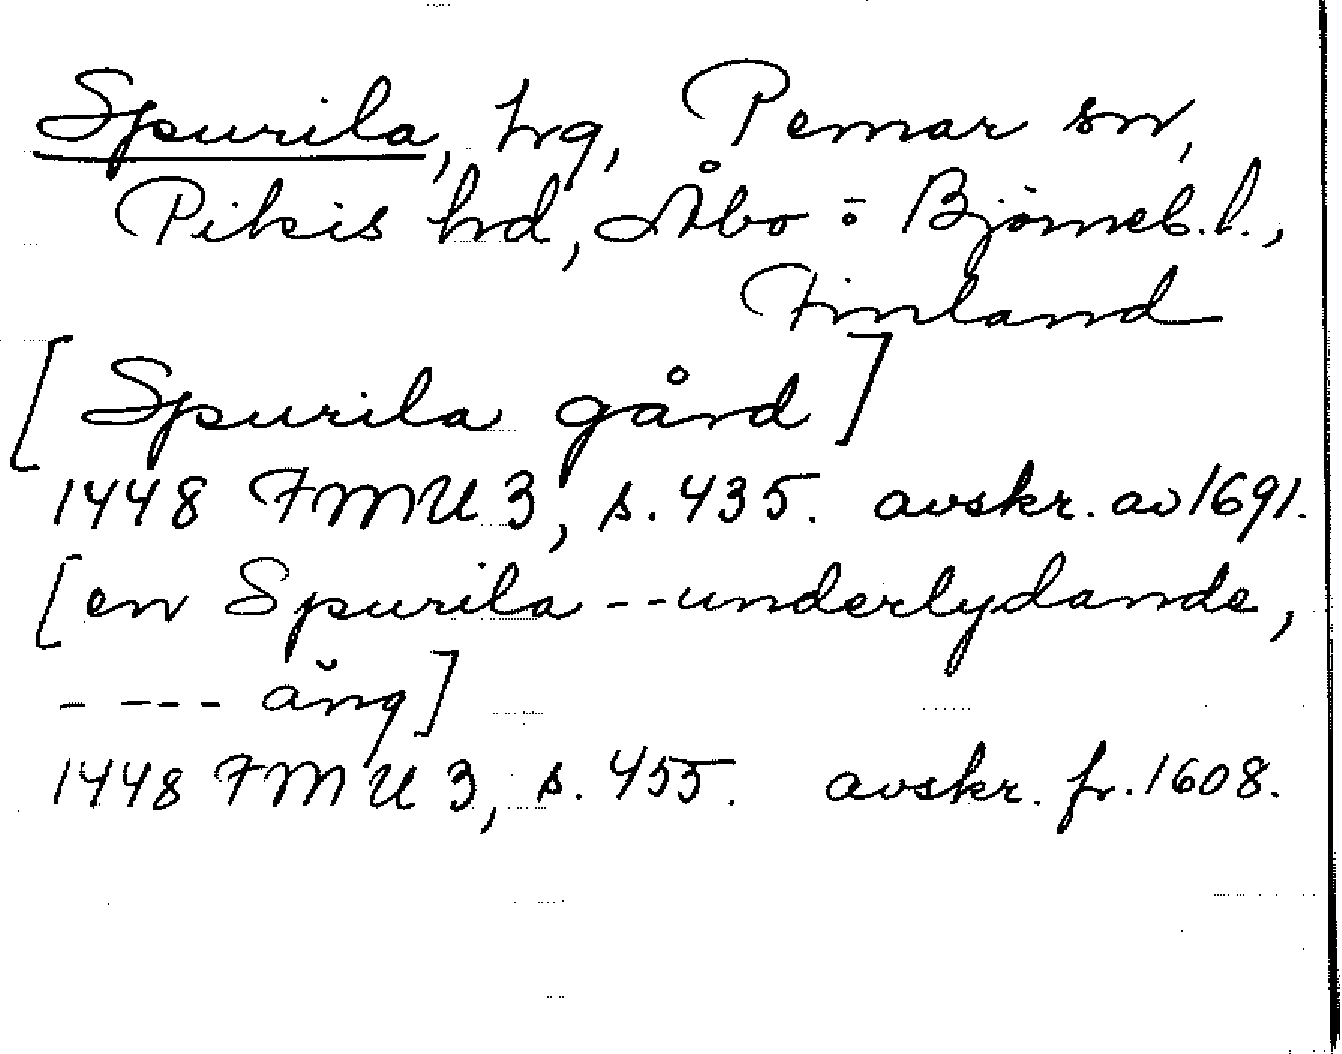 Spurila, hrg, Pemar sn,
Pikis hd, Åbo ö Björneb. l.,
Finland
[Spurila gård]
1448 FMU 3, s. 435. avskr. av 1691.
[en Spurila -- underlydande,
- --- äng]
1448 FMU 3, s. 455. avskr. fr. 1608.